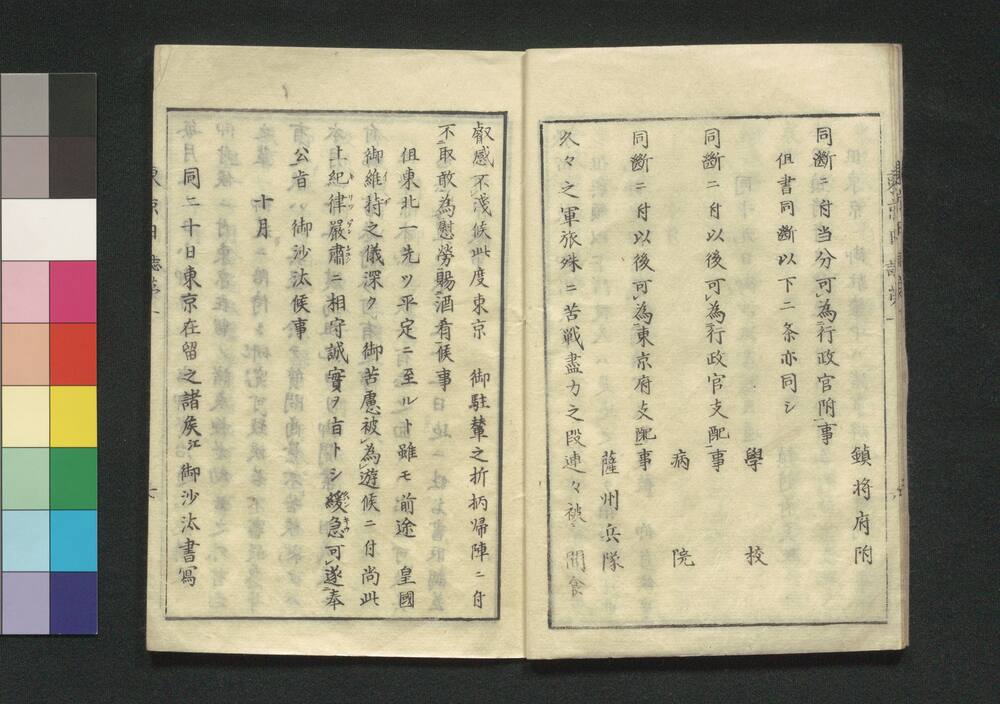 鎮将府附
同断ニ付当分可為行政官附事
但書同断以下二条亦同シ
學校
同断ニ付以後可為行政官支配事
病院
同断ニ付以後可為東京府支配事
薩州兵隊
久々之軍旅殊ニ苦戦盡力之段連々被 聞食
叡感不淺候此度東京 御駐輦之折柄帰陣ニ付
不取敢為慰勞賜酒肴候事
但東北一先ツ平定ニ至ルト雖モ前途 皇國
御維持之儀深ク御苦慮被為遊候ニ付尚此
上紀律嚴肅ニ相守誠實ヲ旨トシ緩急可遂奉
公旨 御沙汰候事
十月
同二十日東京在留之諸矦江御沙汰書寫